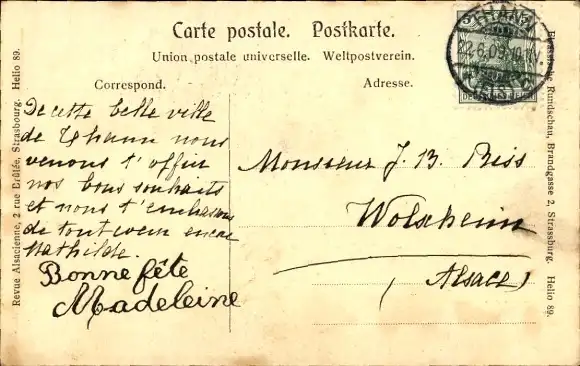 Carte postale. Postkarte.
Union postale universelle. Weltpostverein.
Correspond.
Adresse.
THANN
22.6.09.10-11V.
De cette belle ville
de Thann nous
venons t'offrir
nos bons souhaits
et nous t'embrassons
de tout coeur encore
Mathilde.
Bonne fête
Madeleine
Monsieur J. B. Riss
Wolxheim
(Alsace)
Revue Alsacienne, 2 rue Brûlée, Strasbourg. Helio 89.
Elsässische Rundschau, Brandgasse 2, Strassburg. Helio 89.